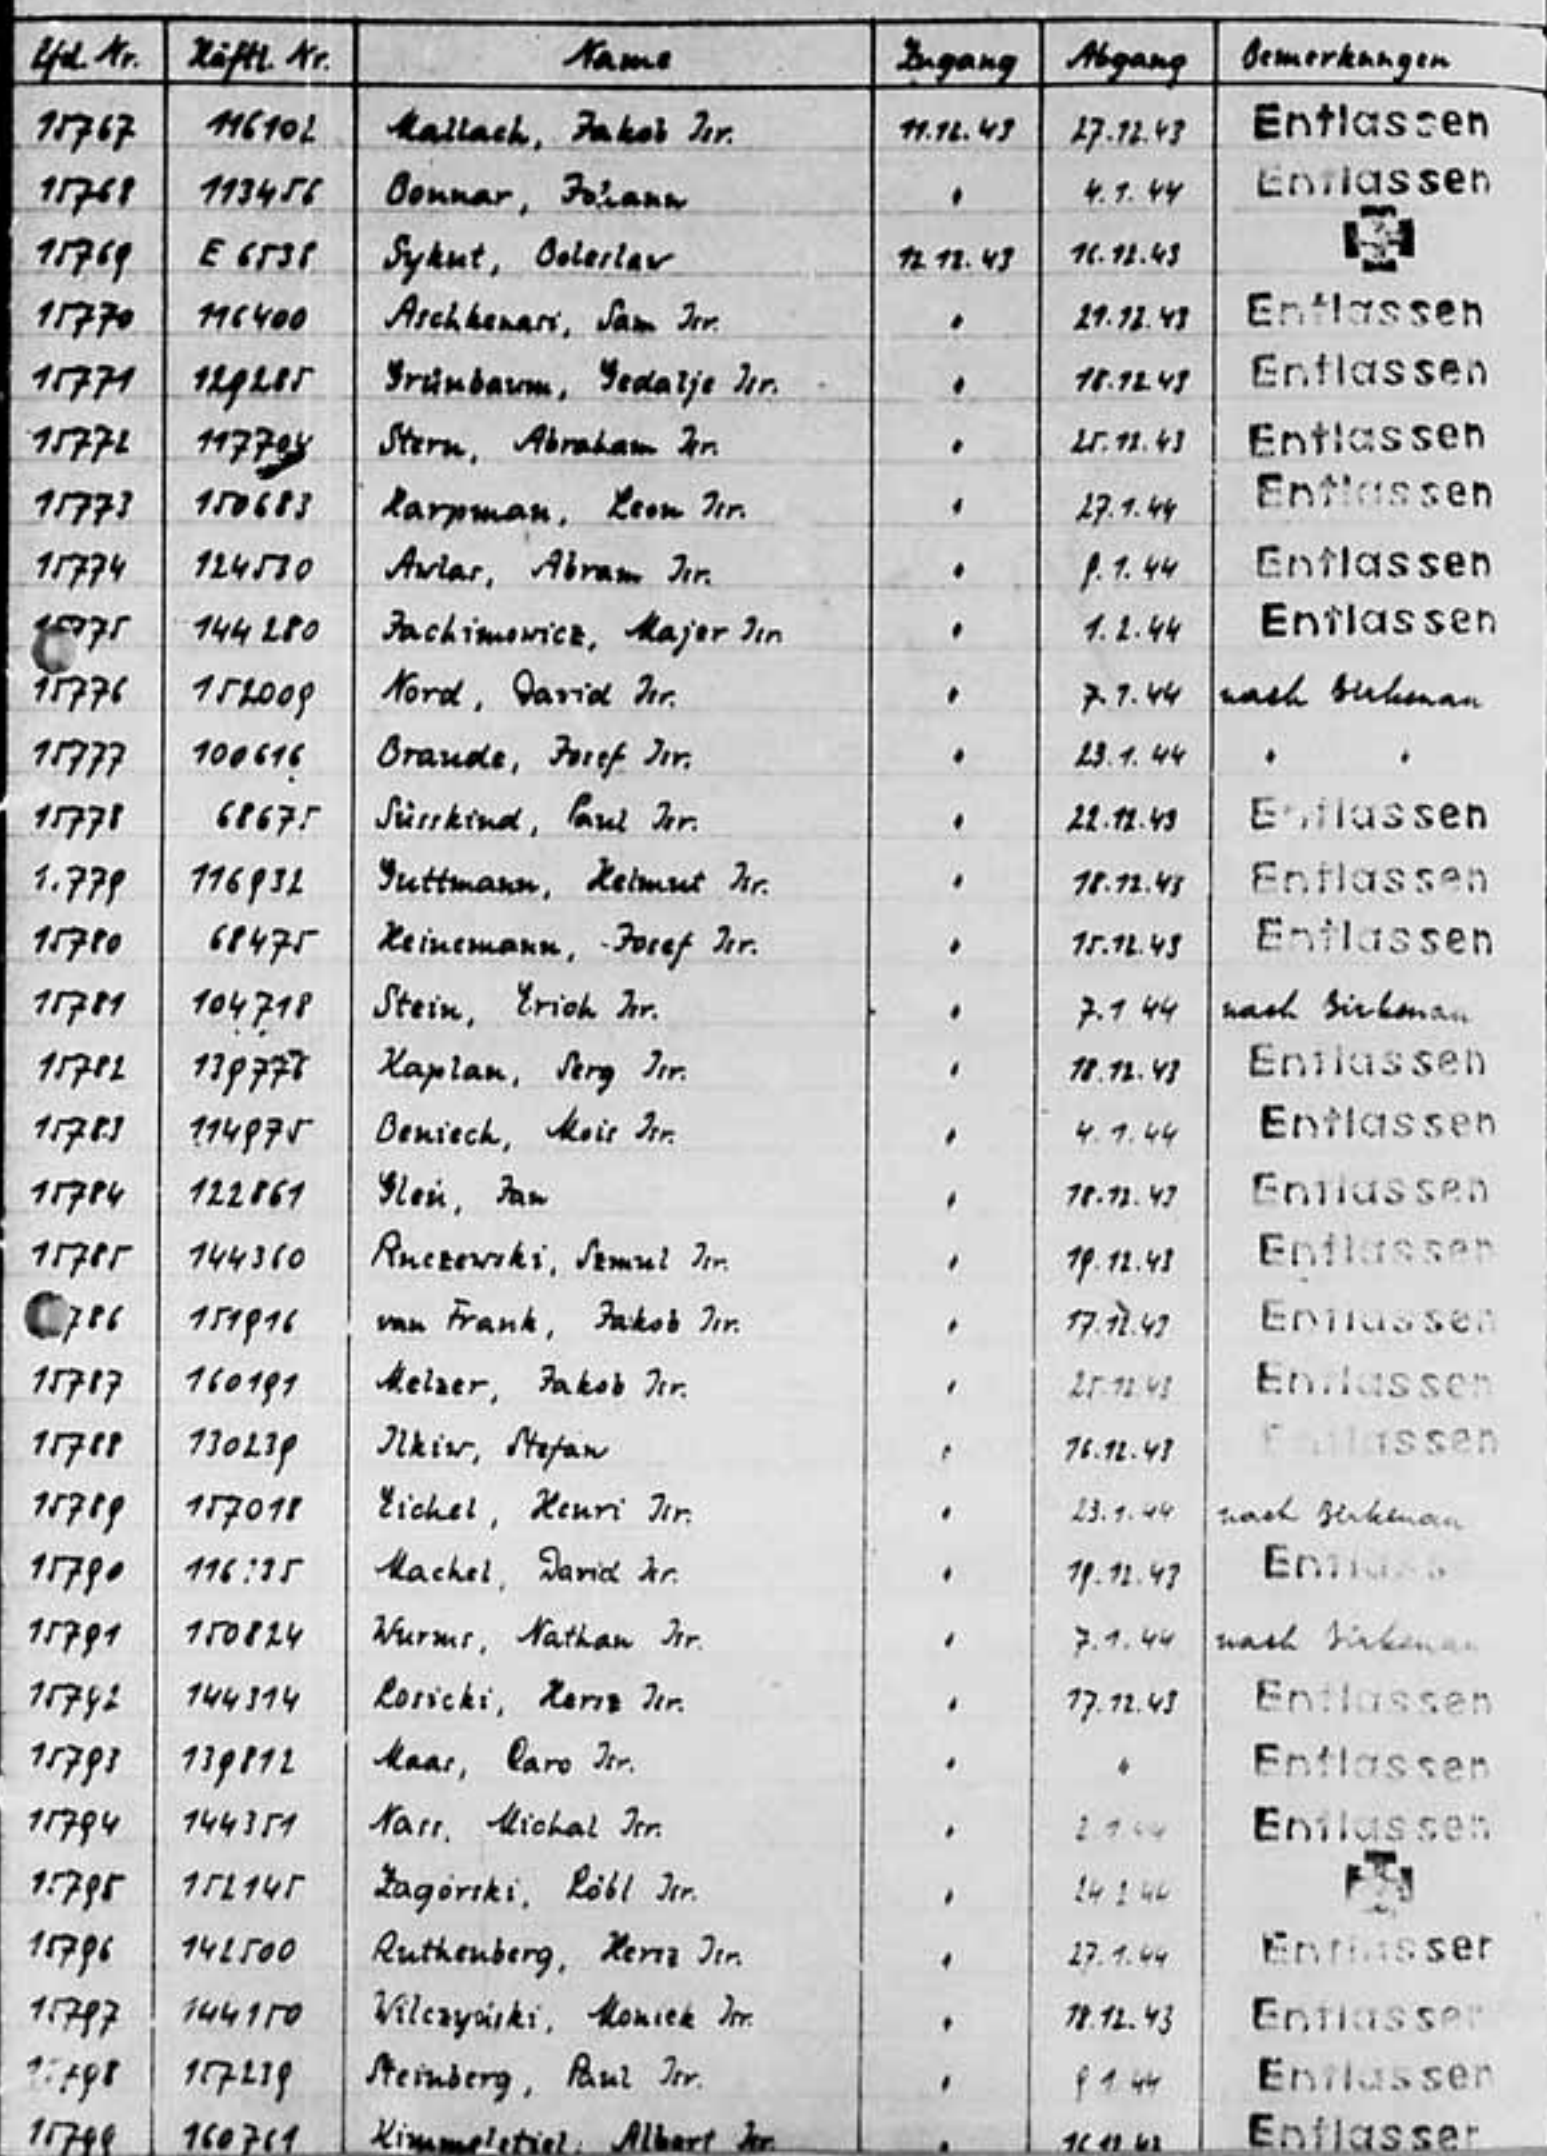 Lfd. Nr. Häftl. Nr. Name Zugang Abgang Bemerkungen
15767 116102 Mallach, Jakob Isr. 11.12.43 27.12.43 Entlassen
15768 113456 Bonnar, Johann " 4.1.44 Entlassen
15769 E 6538 Sykut, Boleslav 12.12.43 16.12.43
15770 116400 Aschkenasi, Sam Isr. " 21.12.43 Entlassen
15771 129285 Grünbaum, Gedalje Isr. " 18.12.43 Entlassen
15772 Stern, Abraham Isr. " 25.12.43 Entlassen
15773 150683 Karpman, Leon Isr. " 27.1.44 Entlassen
15774 124530 Awlas, Abram Isr. " 9.1.44 Entlassen
15775 144280 Jachimowicz, Majer Isr. " 1.2.44 Entlassen
15776 152009 Nord, David Isr. " 7.1.44 nach Birkenau
15777 100616 Braude, Josef Isr. " 23.1.44 " "
15778 68675 Süsskind, Paul Isr. " 22.12.43 Entlassen
1.779 116932 Guttmann, Helmut Isr. " 18.12.43 Entlassen
15780 68475 Heinemann, Josef Isr. " 15.12.43 Entlassen
15781 104718 Stein, Erich Isr. " 7.1.44 nach Birkenau
15782 139778 Kaplan, Serg Isr. " 18.12.43 Entlassen
15783 114975 Beniech, Mois Isr. " 4.1.44 Entlassen
15784 122861 Gleń, Jan " 18.12.43 Entlassen
15785 144360 Ruczewski, Szmul Isr. " 19.12.43 Entlassen
786 151916 van Frank, Jakob Isr. " 17.12.43 Entlassen
15787 160191 Melzer, Jakob Isr. " 25.12.43 Entlassen
15788 130239 Ilkiw, Stefan " 16.12.43 Entlassen
15789 157018 Eichel, Henri Isr. " 23.1.44 nach Birkenau
15790 Machel, David Isr. " 19.12.43 Entlassen
15791 150824 Wurms, Nathan Isr. " 7.1.44 nach Birkenau
15792 144314 Losicki, Hersz Isr. " 17.12.43 Entlassen
15793 139812 Maas, Caro Isr. " " Entlassen
15794 144351 Nass, Michal Isr. " 2.1.44 Entlassen
15795 152145 Zagórski, Löbl Isr. " 24.2.44
15796 142500 Ruthenberg, Hersz Isr. " 27.1.44 Entlassen
15797 144150 Wilczyński, Moniek Isr. " 18.12.43 Entlassen
15798 157239 Steinberg, Paul Isr. " 9.1.44 Entlassen
15799 160761 Himmelstiel, Albert Isr. " 16.12.43 Entlassen